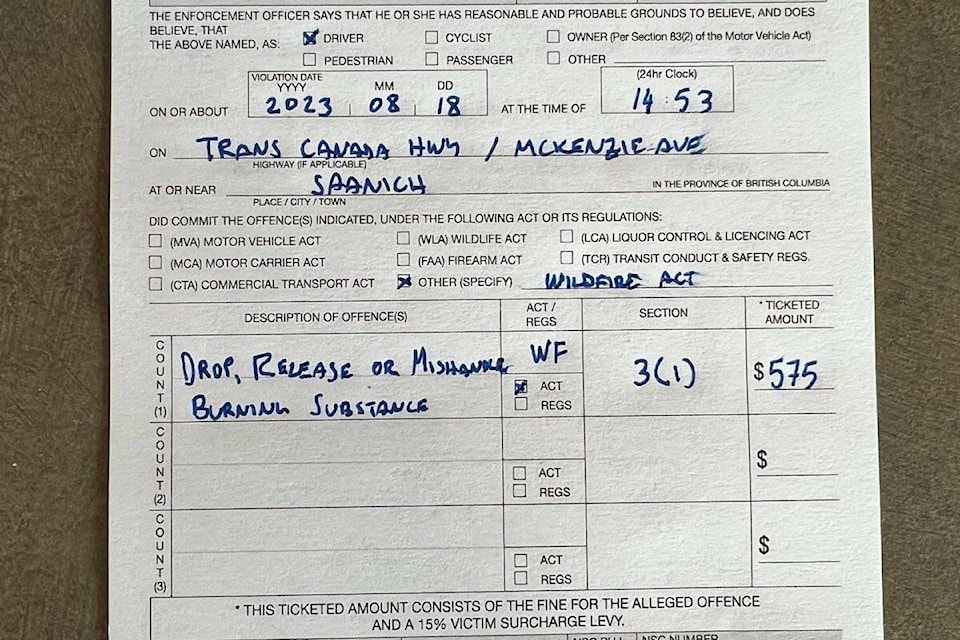 THE ENFORCEMENT OFFICER SAYS THAT HE OR SHE HAS REASONABLE AND PROBABLE GROUNDS TO BELIEVE, AND DOES
BELIEVE, THAT
THE ABOVE NAMED, AS:
DRIVER CYCLIST OWNER (Per Section 83(2) of the Motor Vehicle Act)
PEDESTRIAN PASSENGER OTHER
VIOLATION DATE (24hr Clock)
YYYY MM DD
ON OR ABOUT 2023 08 18 AT THE TIME OF 14:53
ON TRANS CANADA HWY / MCKENZIE AVE
HIGHWAY (IF APPLICABLE)
AT OR NEAR SAANICH IN THE PROVINCE OF BRITISH COLUMBIA
PLACE / CITY / TOWN
DID COMMIT THE OFFENCE(S) INDICATED, UNDER THE FOLLOWING ACT OR ITS REGULATIONS:
(MVA) MOTOR VEHICLE ACT (WLA) WILDLIFE ACT (LCA) LIQUOR CONTROL & LICENCING ACT
(MCA) MOTOR CARRIER ACT (FAA) FIREARM ACT (TCR) TRANSIT CONDUCT & SAFETY REGS.
(CTA) COMMERCIAL TRANSPORT ACT OTHER (SPECIFY) WILDFIRE ACT
DESCRIPTION OF OFFENCE(S) ACT / REGS SECTION * TICKETED AMOUNT
COUNT (1) DROP, RELEASE OR MISHANDLE WF 3(1) $575
BURNING SUBSTANCE ACT
REGS
COUNT (2) $
ACT
REGS
COUNT (3) $
ACT
REGS
* THIS TICKETED AMOUNT CONSISTS OF THE FINE FOR THE ALLEGED OFFENCE
AND A 15% VICTIM SURCHARGE LEVY.
NSC NUMBER